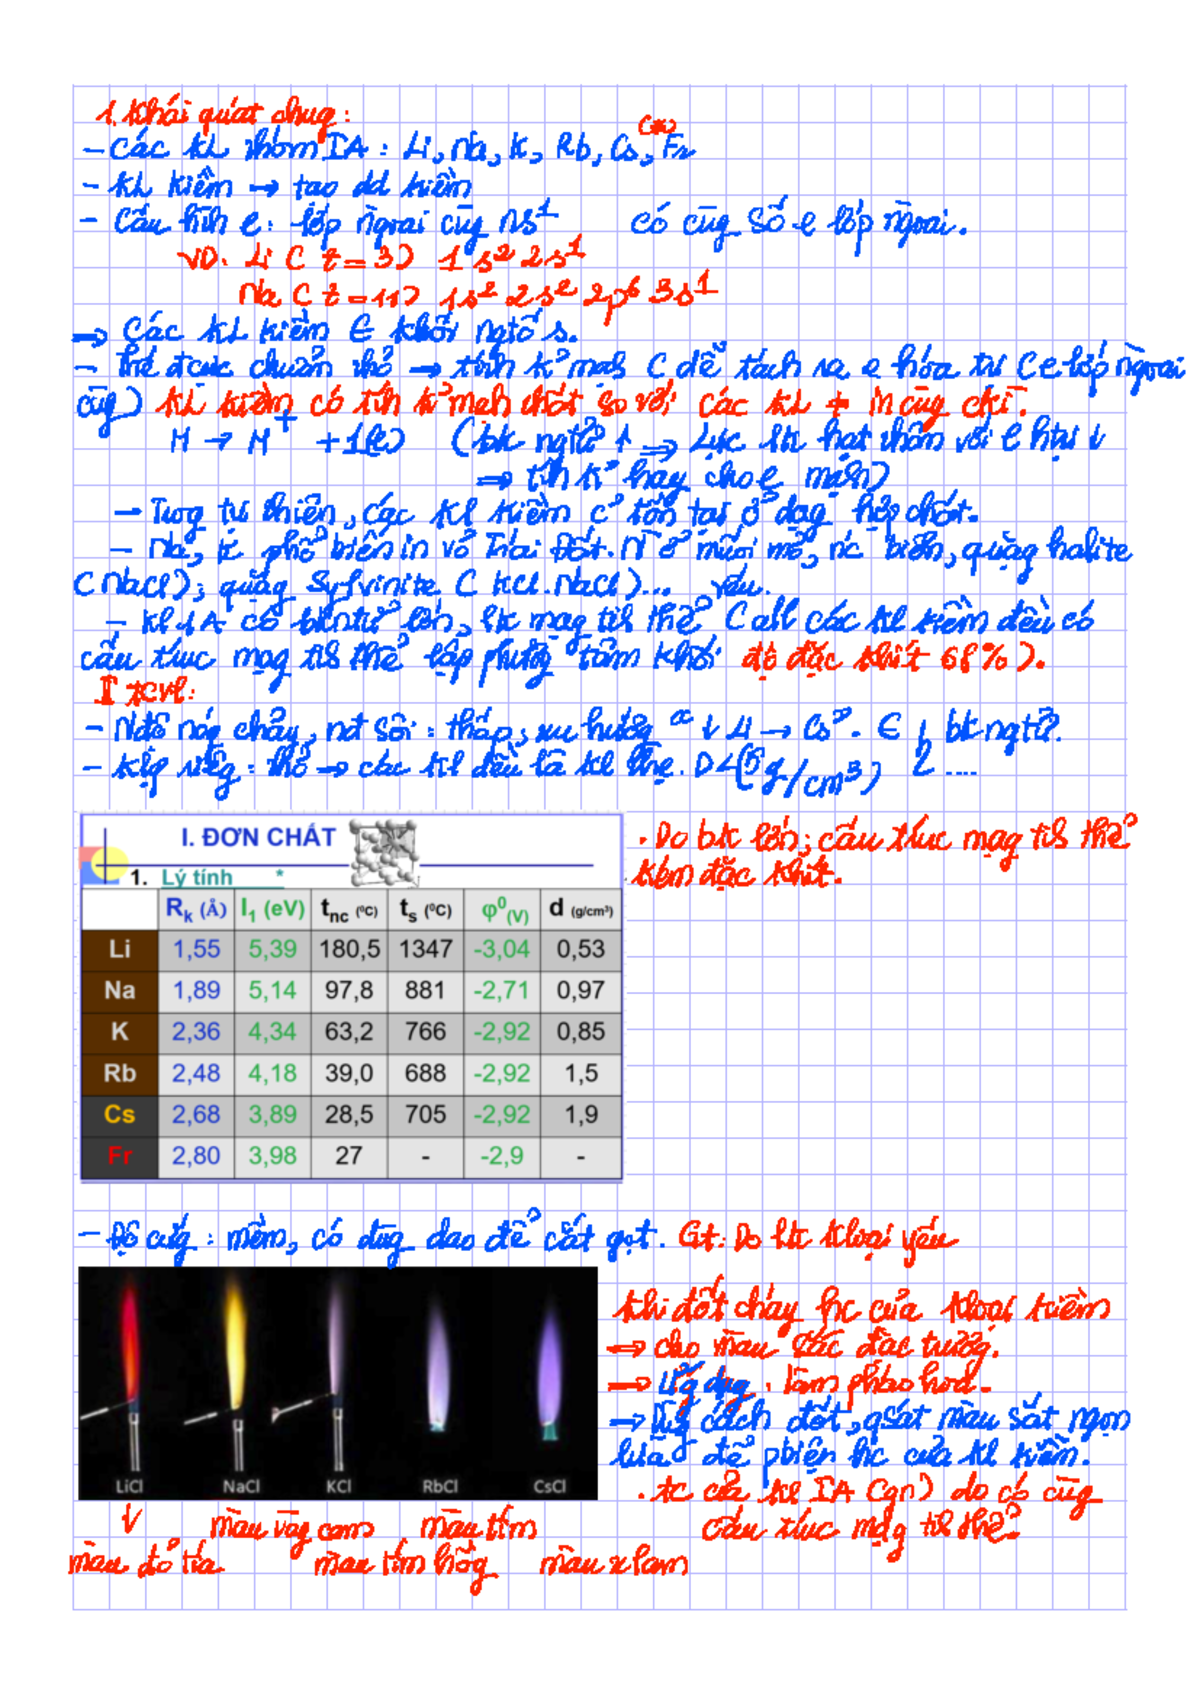 1. Khái quát chug:
- Các KL nhóm IA : Li, Na, K, Rb, Cs, Fr (*)
- KL kiềm → tạo dd kiềm
- Cấu hìh e: lớp ngoài cùg ns¹ có cùg số e lớp ngoài.
VD: Li ( z = 3) 1s² 2s¹
Na ( z = 11) 1s² 2s² 2p⁶ 3s¹
⇒ Các KL kiềm ∈ khối ngtố s.
- Thế đcực chuẩn nhỏ → tíh k° mạh ( dễ tách ra e hóa trị ( e lớp ngoài
cùg) KL kiềm có tíh k° mạh nhất so với các KL ≠ in cùg ckì.
M → M⁺ + 1(e) (bk ngtử ↑ ⇒ Lực lk hạt nhân với e htrị ↓
⇒ tíh k° hay cho e mạh)
- Trog tự nhiên, các Kl kiềm c° tồn tại ở dạg hợp chất.
- Na, K phổ biến in vỏ Trái Đất. Ở muối mỏ, nc biển, quặg halite
( NaCl); quặg Sylvinite ( KCl.NaCl)...
- Kl IA có bk ntử lớn, lk mạg tih thể ( all các kl kiềm đều có
cấu trúc mạg tih thể lập phươg tâm khối độ đặc khít 68%).
I tcvl:
- Nđộ nóg chảy, nđ sôi : thấp; xu hướg ↓ Li → Cs. ∈ bk ngtử.
- Klg riêg : nhỏ → các kl đều là kl nhẹ. D<(5g/cm³) ....
I. ĐƠN CHẤT
1. Lý tính *
Rk (Å) I1 (eV) tnc (⁰C) ts (⁰C) φ⁰(V) d (g/cm³)
Li 1,55 5,39 180,5 1347 -3,04 0,53
Na 1,89 5,14 97,8 881 -2,71 0,97
K 2,36 4,34 63,2 766 -2,92 0,85
Rb 2,48 4,18 39,0 688 -2,92 1,5
Cs 2,68 3,89 28,5 705 -2,92 1,9
Fr 2,80 3,98 27 - -2,9 -
. Do bk lớn; cấu trúc mạg tih thể
kém đặc khít.
- Độ cứg : mềm, có dùg dao để cắt gọt. Gt: Do lk kloại yếu
Khi đốt cháy hc của kloại kiềm
⇒ cho màu sắc đặc trưg.
⇒ Ứg dụg : làm pháo hoa.
⇒ Dùg cách đốt, qsát màu sắt ngọn
lửa để pbiện hc của kl kiềm.
. tc của kl IA (gn) do có cùg
cấu trúc mạg tih thể.
LiCl NaCl KCl RbCl CsCl
↓ màu vàg cam màu tím
màu đỏ tía màu tím hồg màu x lam